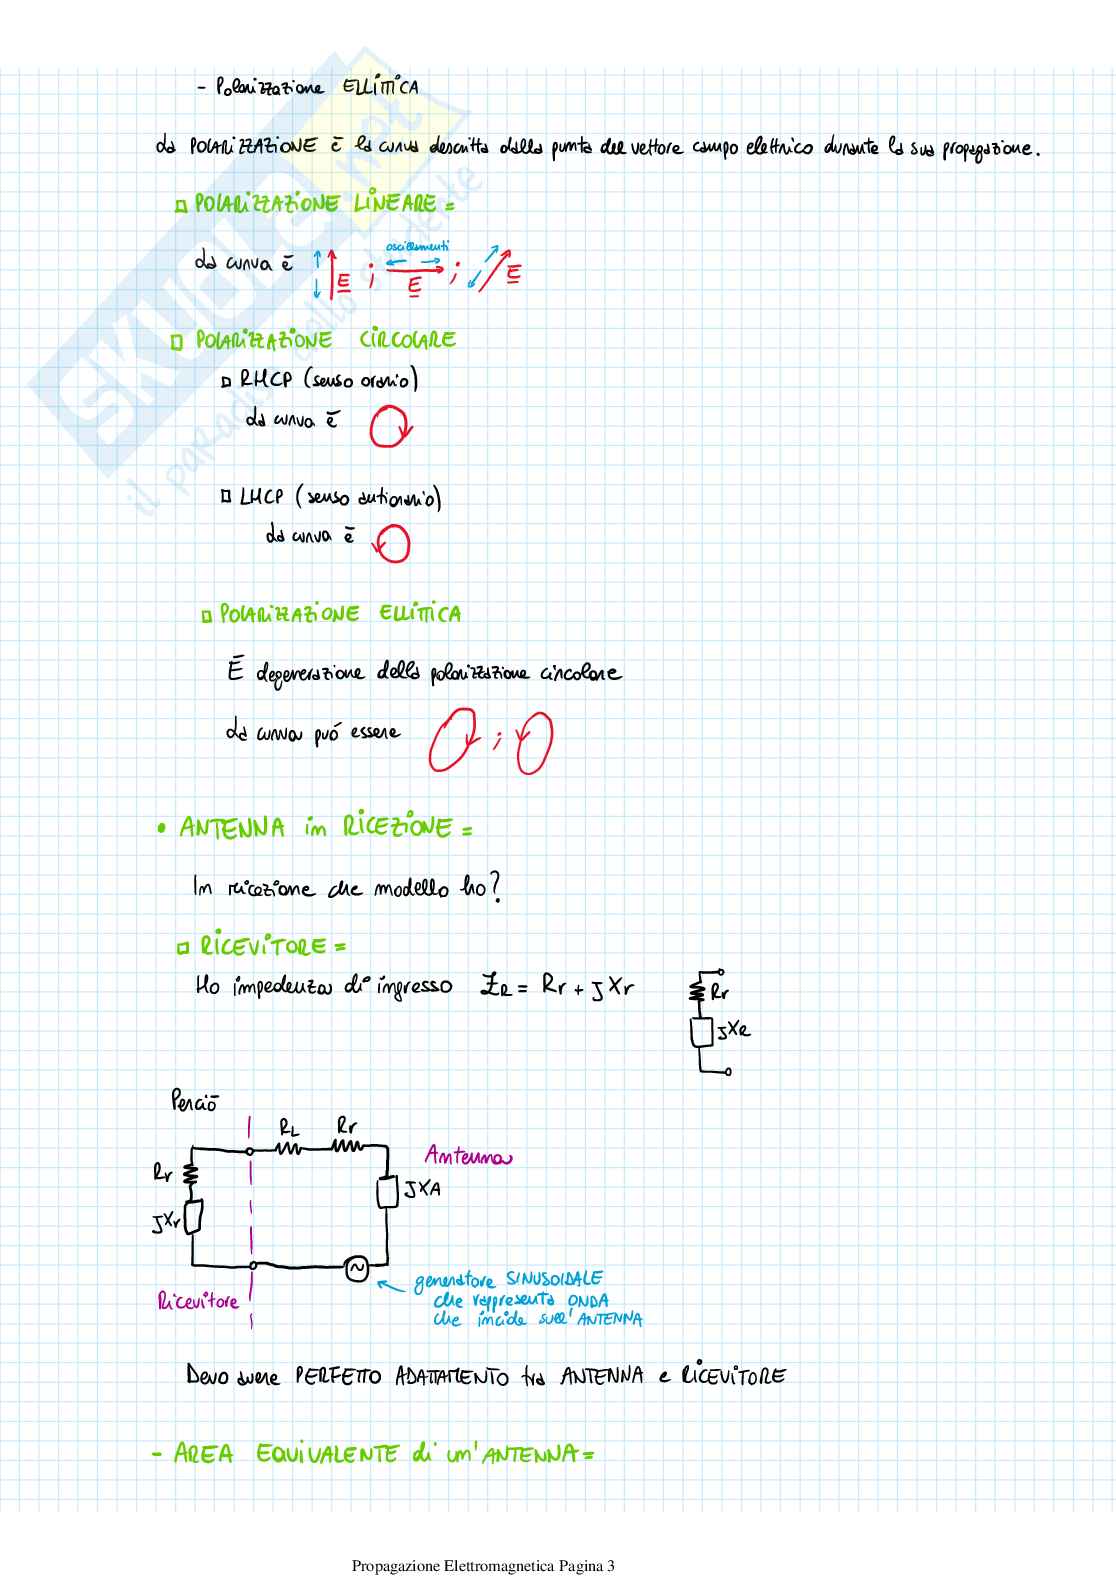 - Polarizzazione ELLITTICA
La POLARIZZAZIONE è la curva descritta dalla punta del vettore campo elettrico durante la sua propagazione.
POLARIZZAZIONE LINEARE =
oscillamenti
La curva è E ; E ; E
POLARIZZAZIONE CIRCOLARE
RHCP (senso orario)
La curva è
LHCP (senso antiorario)
La curva è
POLARIZZAZIONE ELLITTICA
È degenerazione della polarizzazione circolare
La curva può essere ;
• ANTENNA in RICEZIONE =
In ricezione che modello ho?
RICEVITORE =
Ho impedenza di ingresso ZR = Rr + JXr
Rr
JXR
Perciò
RL Rr
Antenna
Rr
JXA
JXr
Ricevitore
generatore SINUSOIDALE
che rappresenta ONDA
che incide sull'ANTENNA
Devo avere PERFETTO ADATTAMENTO tra ANTENNA e RICEVITORE
- AREA EQUIVALENTE di un'ANTENNA =
Propagazione Elettromagnetica Pagina 3
SKUOLA.net
il paradiso dello studente